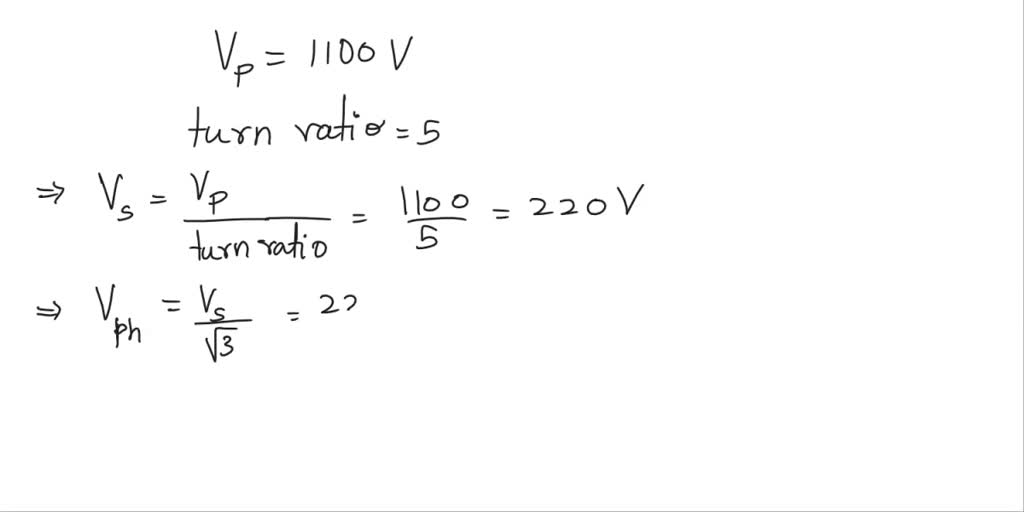 Vp = 1100 V
turn ratio = 5
⇒ Vs = Vp / turn ratio = 1100 / 5 = 220 V
⇒ Vph = Vs / √3 = 22